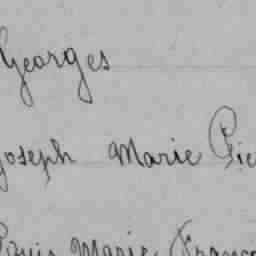 Georges
Joseph Marie Pie
Louis Marie Franço